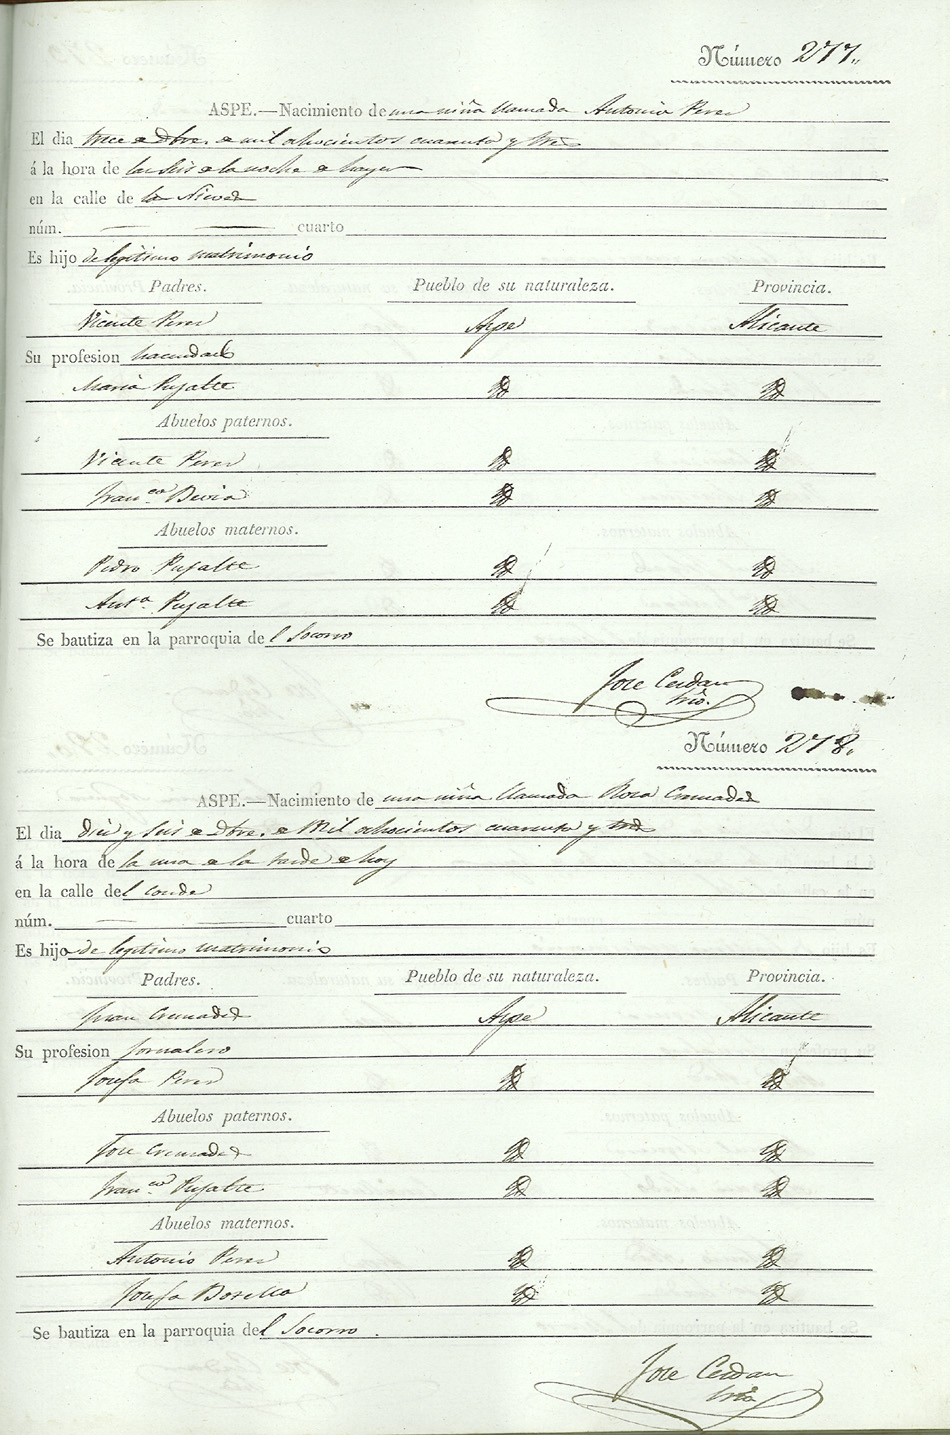 Número 277.
ASPE.—Nacimiento de una niña llamada Antonia Perez
El dia trece de Dbre. de mil ochocientos cuarenta y tres
á la hora de las seis de la noche de hayer
en la calle de la Nieve
núm. cuarto
Es hijo de legitimo matrimonio
Padres. Pueblo de su naturaleza. Provincia.
Vicente Perez Aspe Alicante
Su profesion hacendado
Maria Pujalte id id
Abuelos paternos.
Vicente Perez id id
Franca Devia id id
Abuelos maternos.
Pedro Pujalte id id
Anta. Pujalte id id
Se bautiza en la parroquia del Socorro
Jose Cerdan
Srio.
Número 278.
ASPE.—Nacimiento de una niña llamada Rosa Cremades
El dia diez y seis de Dbre. de Mil ochocientos cuarenta y tres
á la hora de la una de la tarde de hoy
en la calle del conde
núm. cuarto
Es hijo de legitimo matrimonio
Padres. Pueblo de su naturaleza. Provincia.
Juan Cremades Aspe Alicante
Su profesion jornalero
Josefa Perez id id
Abuelos paternos.
Jose Cremades id id
Franca Pujalte id id
Abuelos maternos.
Antonio Perez id id
Josefa Botella id id
Se bautiza en la parroquia del Socorro.
Jose Cerdan
Srio